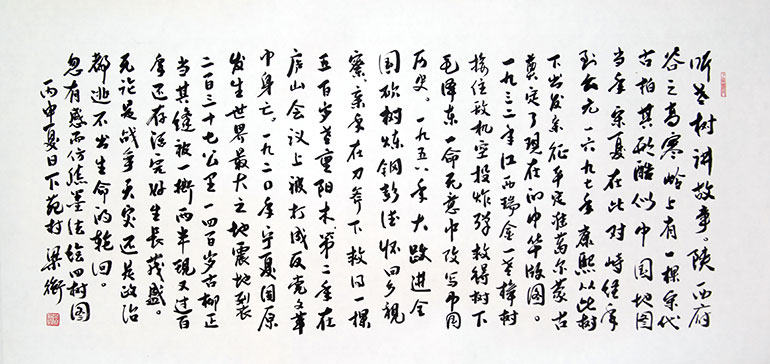 听老树讲故事。陕西府
谷之高寒岭上有一棵宋代
古柏其形酷似中国地图
当年宋夏在此对峙经年
到公元一六九七年康熙从此树
下出发亲征平定准葛尔蒙古
奠定了现在的中华版图。
一九三二年江西瑞金一老樟树
接住敌机空投炸弹救得树下
毛泽东一命无意中改写中国
历史。一九五八年大跃进全
国砍树炼钢彭德怀回乡视
察,亲手在刀斧下救得一棵
五百岁老重阳木第二年在
庐山会议上被打成反党文革
中身亡。一九二〇年宁夏固原
发生世界最大之地震地裂
二百三十七公里一四百岁古柳正
当其缝被一撕两半现又过百
年还存活完好生长茂盛。
无论是战争天灾还是政治
都逃不出生命的轮回。
忽有感而仿焦墨法绘四树图
丙申夏日下苑村 梁衡